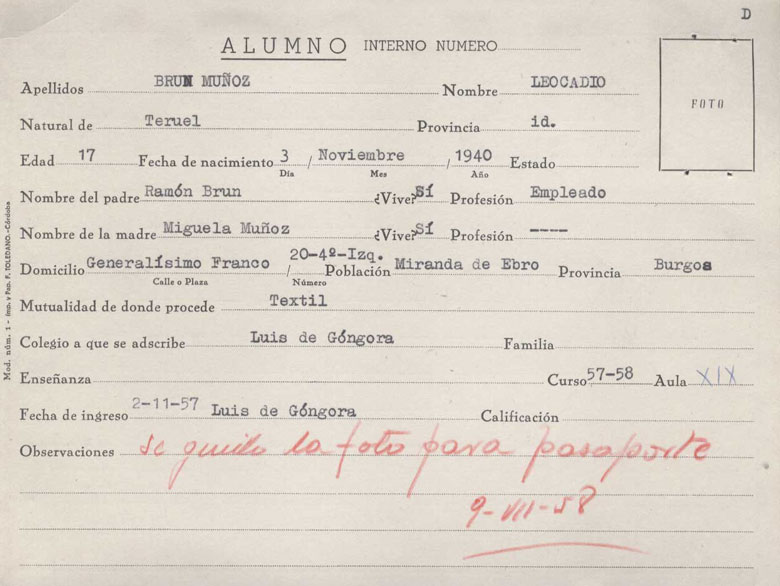 D
ALUMNO INTERNO NUMERO
Apellidos BRUN MUÑOZ Nombre LEOCADIO
FOTO
Natural de Teruel Provincia id.
Edad 17 Fecha de nacimiento 3 / Noviembre / 1940 Estado
Día Mes Año
Nombre del padre Ramón Brun ¿Vive? Sí Profesión Empleado
Nombre de la madre Miguela Muñoz ¿Vive? Sí Profesión ----
Domicilio Generalísimo Franco / 20-4º-Izq. Población Miranda de Ebro Provincia Burgos
Calle o Plaza Número
Mutualidad de donde procede Textil
Colegio a que se adscribe Luis de Góngora Familia
Enseñanza Curso 57-58 Aula XIX
Fecha de ingreso 2-11-57 Luis de Góngora Calificación
Observaciones se quito la foto para pasaporte
9-VII-58
Mod. núm. 1 - Imp. y Pap. F. TOLEDANO.-Córdoba